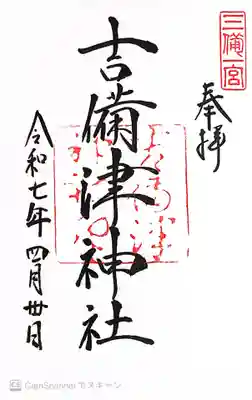 三備一宮
奉拝
吉備津神社
令和七年四月卅日
CamScanner でスキャン